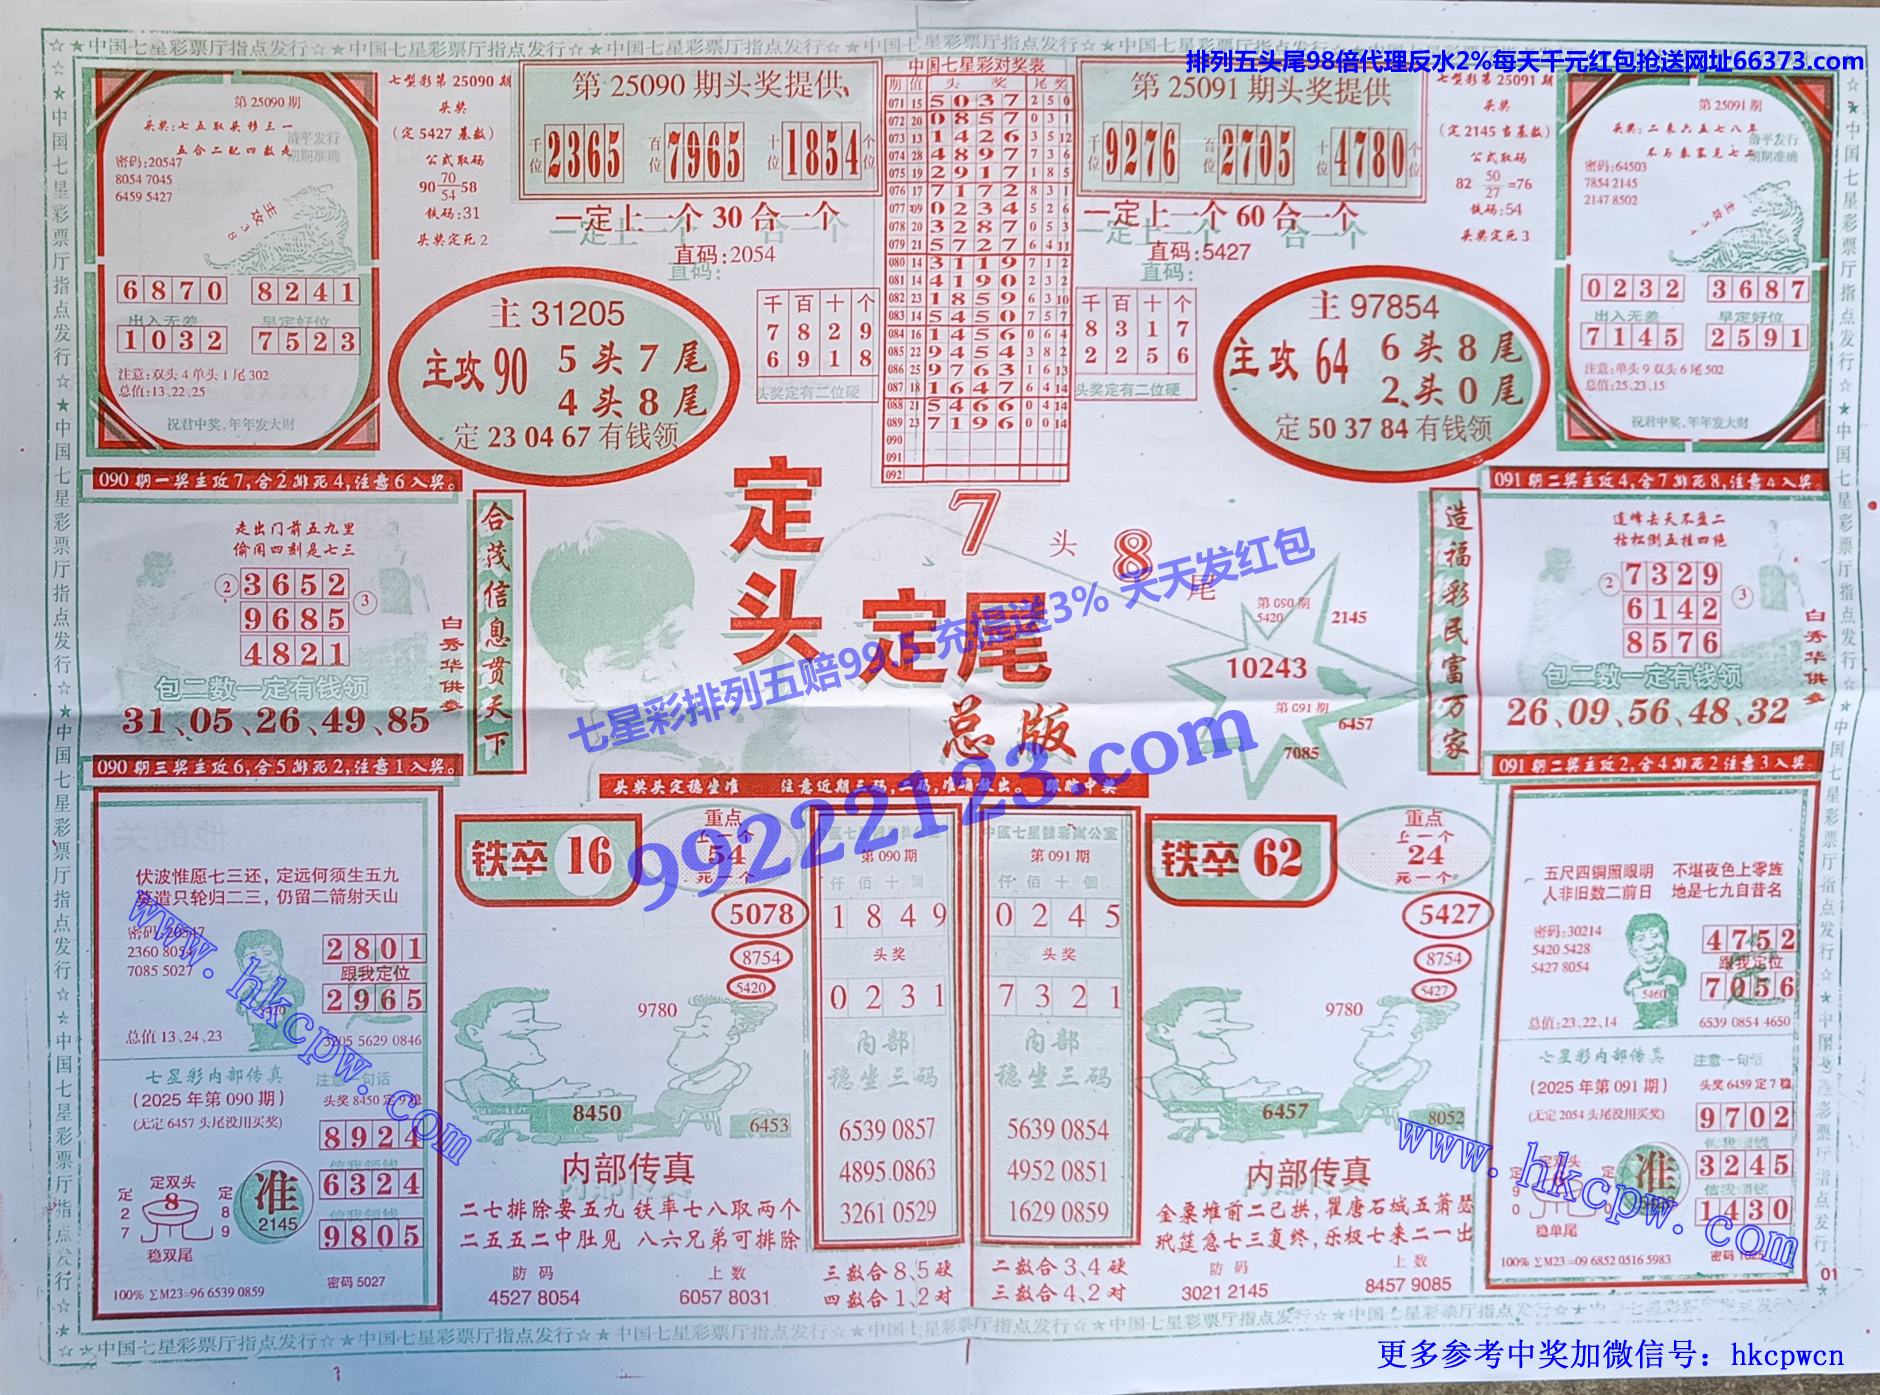 ☆★中国七星彩票厅指点发行☆★中国七星彩票厅指点发行☆★中国七星彩票厅指点发行☆★
排列五头尾98倍代理反水2%每天千元红包抢送网址66373.com
第 25090 期
头奖:七五取头移三一
五合二配四数走
清平发行
期期准确
密码:20547
8054 7045
6459 5427
主攻38
6870 8241
出入无差 早定好位
1032 7523
注意:双头 4 单头 1 尾 302
总值:13、22、25
祝君中奖,年年发大财
七型彩第 25090 期
头奖
(定 5427 基数)
公式取码
90 70/54 58
铁码:31
头奖定死 2
第 25090 期头奖提供
千位 2365 百位 7965 十位 1854 个位
一定上一个 30 合一个
直码:2054
主 31205
主攻 90 5 头 7 尾
4 头 8 尾
定 23 04 67 有钱领
千百十个
7829
6918
头奖定有二位硬
中国七星彩对奖表
期 值 头奖 尾奖
071 15 5037 2 5 0
072 20 0857 0 3 1
073 13 1426 3 5 12
074 28 4897 7 3 6
075 19 2917 1 8 5
076 17 7172 8 3 1
077 09 0234 5 2 6
078 20 3287 0 5 3
079 21 5727 6 4 11
080 14 3119 7 1 2
081 14 4190 2 3 2
082 23 1859 6 3 10
083 14 5450 7 5 7
084 16 1456 0 6 4
085 22 9454 3 8 2
086 25 9763 1 6 13
087 18 1647 6 4 14
088 21 5466 0 4 14
089 23 7196 0 0 14
090
091
092
第 25091 期头奖提供
千位 9276 百位 2705 十位 4780 个位
一定上一个 60 合一个
直码:5427
千百十个
8317
2256
头奖定有二位硬
主 97854
主攻 64 6 头 8 尾
2、头 0 尾
定 50 37 84 有钱领
七型彩第 25091 期
头奖
(定 2145 当基数)
公式取码
82 50/27 =76
铁码:54
头奖定死 3
第 25091 期
头奖:二来六五七八年
不与秦家见七二
清平发行
期期准确
密码:64503
7854 2145
2147 8502
0232 3687
出入无差 早定好位
7145 2591
注意:单头 9 双头 6 尾 502
总值:25、23、15
祝君中奖,年年发大财
090 期一奖主攻 7,合 2 排死 4,注意 6 入奖。
走出门前五九里
偷闲四刻是七三
② 3652 ③
9685
4821
包二数一定有钱领
31、05、26、49、85
白秀华供参
合茂信息贯天下
090 期三奖主攻 6,合 5 排死 2,注意 1 入奖。
定头
定尾
7 头 8 尾
总版
七星彩排列五赔99.5 充提送3% 天天发红包
99222123.com
头奖头定稳坐准
第 090 期
5420
2145
10243
第 091 期
6457
7085
造福彩民富万家
091 期二奖主攻 4,合 7 排死 8,注意 4 入奖。
道峰去天不盈二
枯松倒五挂四绝
② 7329 ③
6142
8576
包二数一定有钱领
26、09、56、48、32
白秀华供参
091 期二奖主攻 2,合 4 排死 2 注意 3 入奖。
伏波惟愿七三还,定远何须生五九
莫遣只轮归二三,仍留二箭射天山
密码:20547
2360 8054
7085 5027
2801
跟我定位
2965
总值 13、24、23
3205 5629 0846
七星彩内部传真 注意一句话
(2025 年第 090 期)
头奖 8450 定 9 稳
(无定 6457 头尾没用买奖)
8924
信我领钱
6324
信我领钱
9805
定双头
定27 8 定89
稳双尾
准
2145
密码 5027
100% ∑M23=96 6539 0859
铁卒 16
重点
上一个
54
死一个
5078
8754
5420
9780
8450
6453
内部传真
二七排除要五九 铁率七八取两个
二五五二中肚见 八六兄弟可排除
防码 上数
4527 8054 6057 8031
第 090 期
仟佰十個
1849
头奖
0231
内部
稳坐三码
6539 0857
4895 0863
3261 0529
三数合 8、5 硬
四数合 1、2 对
中國七星體彩辦公室
第 091 期
仟佰十個
0245
头奖
7321
内部
稳坐三码
5639 0854
4952 0851
1629 0859
二数合 3、4 硬
三数合 4、2 对
铁卒 62
重点
上一个
24
死一个
5427
8754
5427
9780
6457
8052
内部传真
金粟堆前二己拱,瞿唐石城五萧瑟
玳筵急七三复终,乐极七来二一出
防码 上数
3021 2145 8457 9085
五尺四铜照眼明 不堪夜色上零族
人非旧数二前日 地是七九自昔名
密码:30214
5420 5428
5427 8054
5460
4752
跟我定位
7056
总值:23、22、14
6539 0854 4650
七星彩内部传真 注意一句话
(2025 年第 091 期)
头奖 6459 定 7 稳
(无定 2054 头尾没用买奖)
9702
信我领钱
3245
信我领钱
1430
定双头
定90
稳单尾
准
100% ∑M23=09 6852 0516 5983
01
www.hkcpw.com
www.hkcpw.com
☆★中国七星彩票厅指点发行☆★中国七星彩票厅指点发行☆★中国七星彩票厅指点发行☆★
更多参考中奖加微信号：hkcpwcn